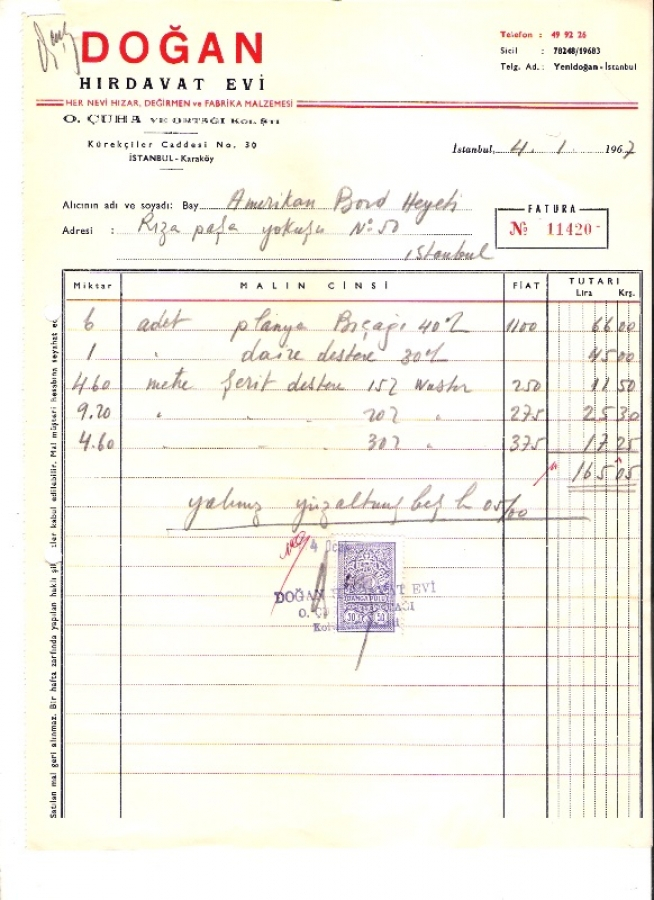 DOĞAN
HIRDAVAT EVİ
HER NEVİ HIZAR, DEĞİRMEN ve FABRİKA MALZEMESİ
O. ÇUHA VE ORTAĞI KOL. ŞTİ
Kürekçiler Caddesi No. 30
İSTANBUL - Karaköy
Telefon : 49 92 26
Sicil : 78248/19683
Telg. Ad. : Yenidoğan - İstanbul
İstanbul, 4. 1 1967
Alıcının adı ve soyadı: Bay Amerikan Bord Heyeti
Adresi : Rıza paşa yokuşu No 50
istanbul
FATURA
No 11420
Miktar MALIN CİNSİ FİAT TUTARI
Lira Krş.
6 adet plânya Bıçağı 40 1100 66 00
1 " daire destere 30 45 00
4.60 metre Şerit destere 15 250 11 50
9.20 " " " 20 " 275 25 30
4.60 " " " 30 " 375 17 25
165 05
yalnız yüzaltmış beş L 05/00
4 Ocak
DOĞAN HIRDAVAT EVİ
DAMGA PULU
50 50
Satılan mal geri alınmaz. Bir hafta zarfında yapılan haklı şikâyetler kabul edilebilir. Mal müşteri hesabına seyahat ed